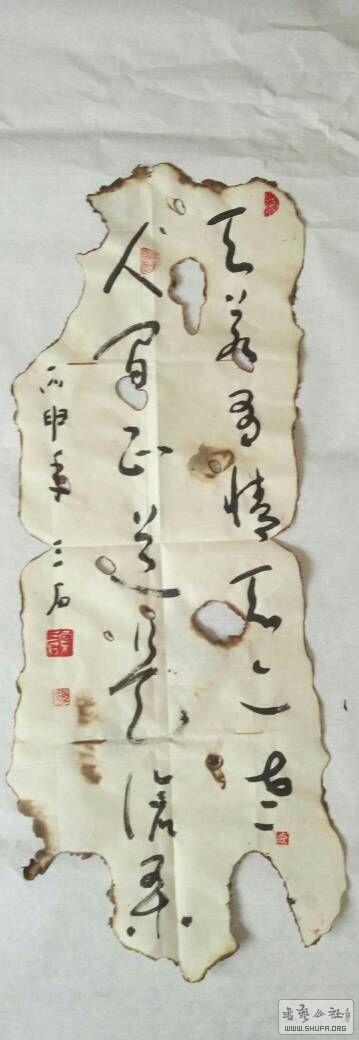 天若有情天亦老
人间正道是沧桑
丙申年 三石
书艺公社
WWW.SHUFA.ORG